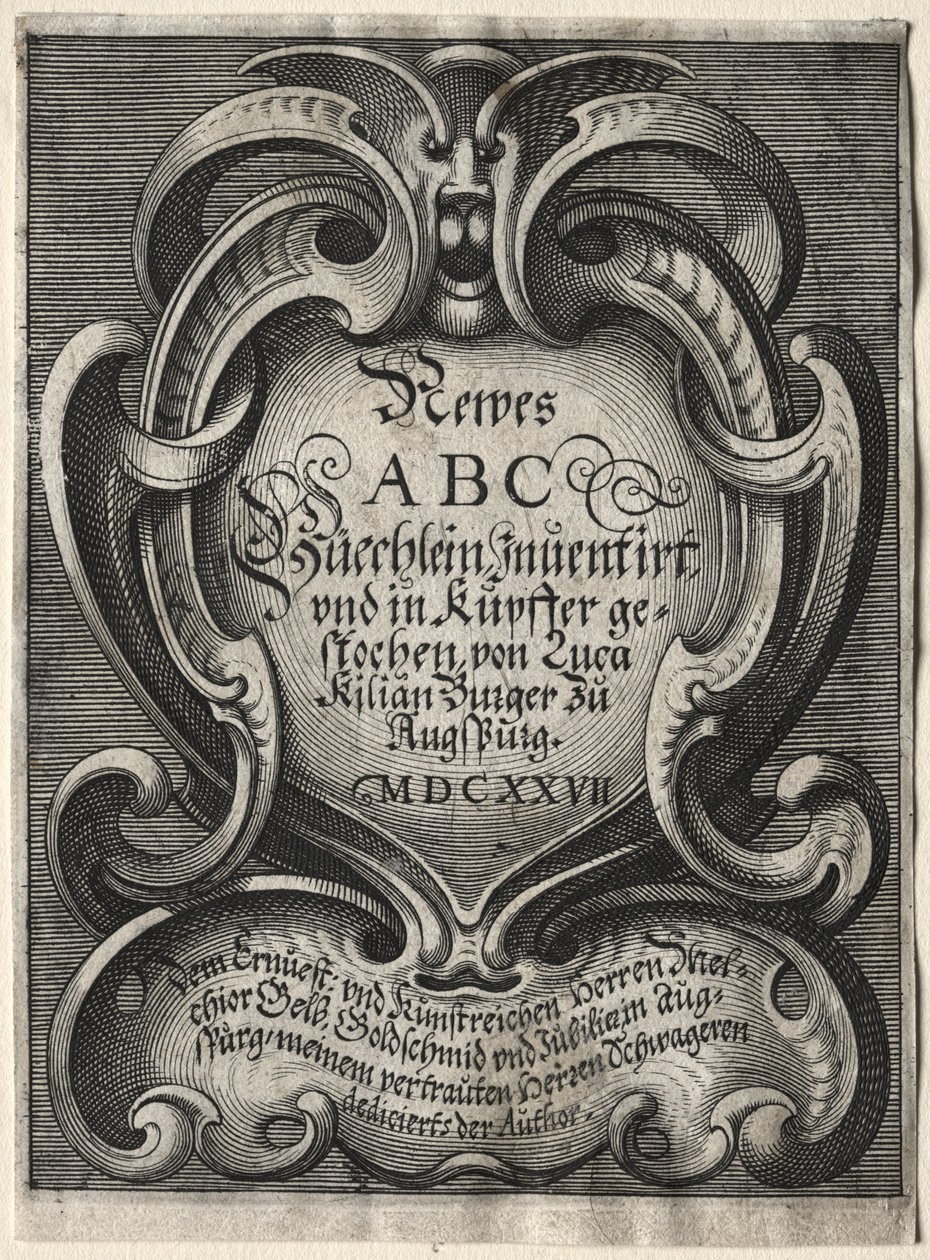 Newes
ABC
Büechlein, Inventirt,
vnd in Kupffer ge-
stochen, von Luca
Kilian Burger zu
Augspurg.
MDCXXVII
Dem Ernuest: vnd Kunstreichen Herren Mel-
chior Gelb, Goldschmid vnd Jubilier in Aug-
spurg, meinem vertrauten Herren Schwageren
dedicierts der Author.